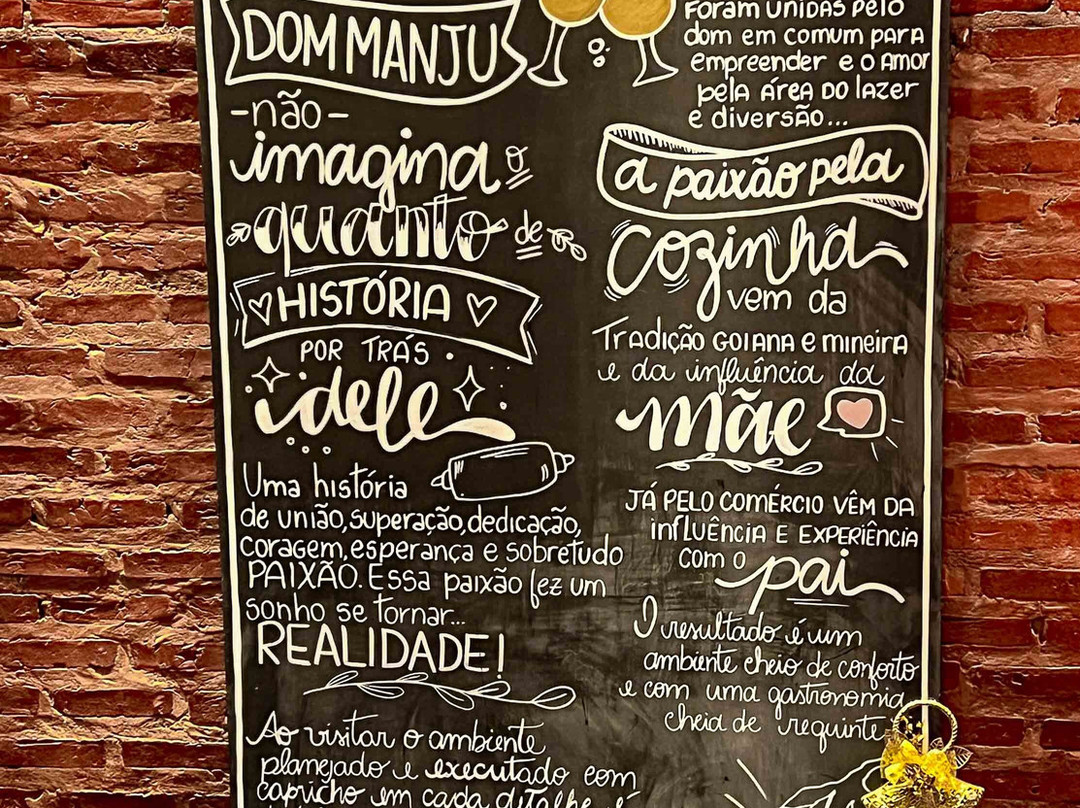 DOM MANJU
-não-
imagina o
quanto de
HISTÓRIA
POR TRÁS
dele
Uma história
de união, superação, dedicação,
coragem, esperança e sobretudo
PAIXÃO. Essa paixão fez um
sonho se tornar...
REALIDADE!
Ao visitar o ambiente
planejado e executado com
capricho em cada detalhe é
Foram UNIDAS PELO
dom em comum PARA
empreender e o Amor
pela ÁREA DO lazer
e diversão...
a paixão pela
cozinha
vem da
Tradição GOIANA e mineira
e da influência da
mãe
JÁ PELO COMÉRCIO VÊM DA
INFLUÊNCIA E EXPERIÊNCIA
com o
pai
O resultado é um
ambiente cheio de conforto
e com uma gastronomia
cheia de requinte